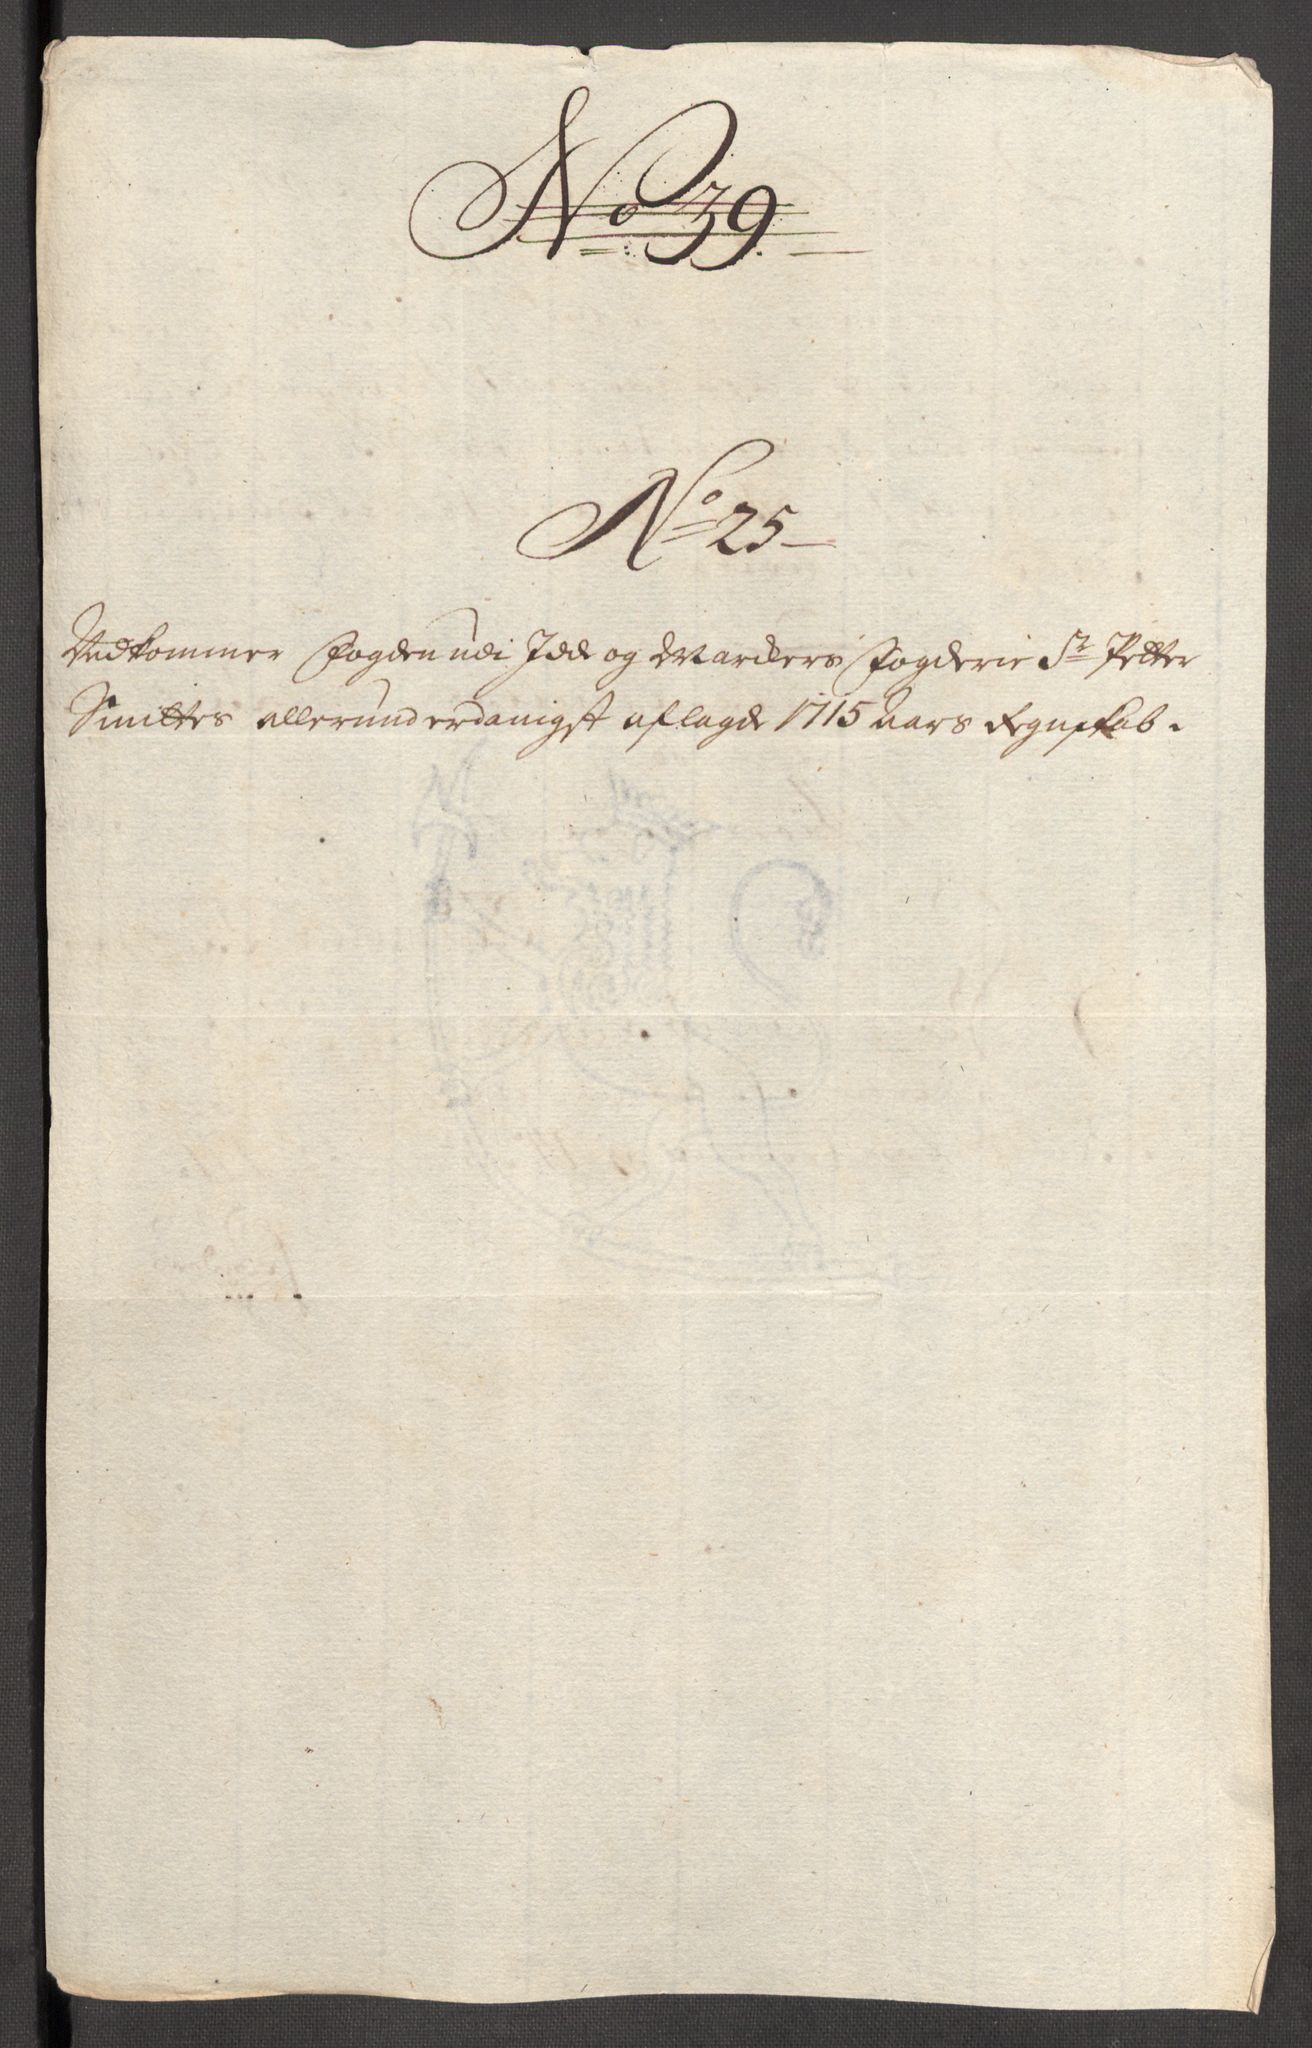 No 39.
No 25
Vedkommer Fogden udi Idde og Marckers Fogderie Sr Petter
Smittes allerunderdanigst aflagde 1715 Aars Regnskab.